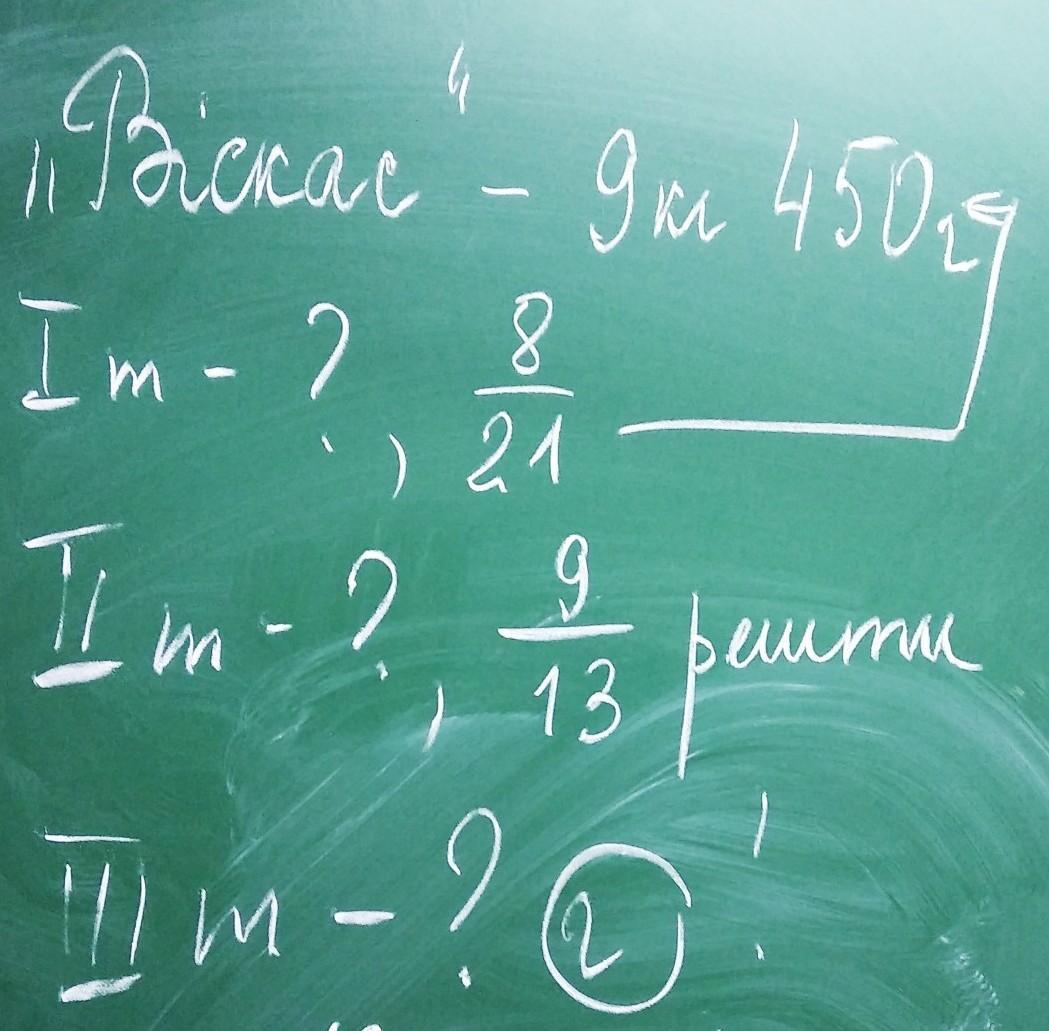 „Віскас“ - 9 кг 450 г
I т - ?, 8/21
II т - ?, 9/13 решти
III т - ? (г) !